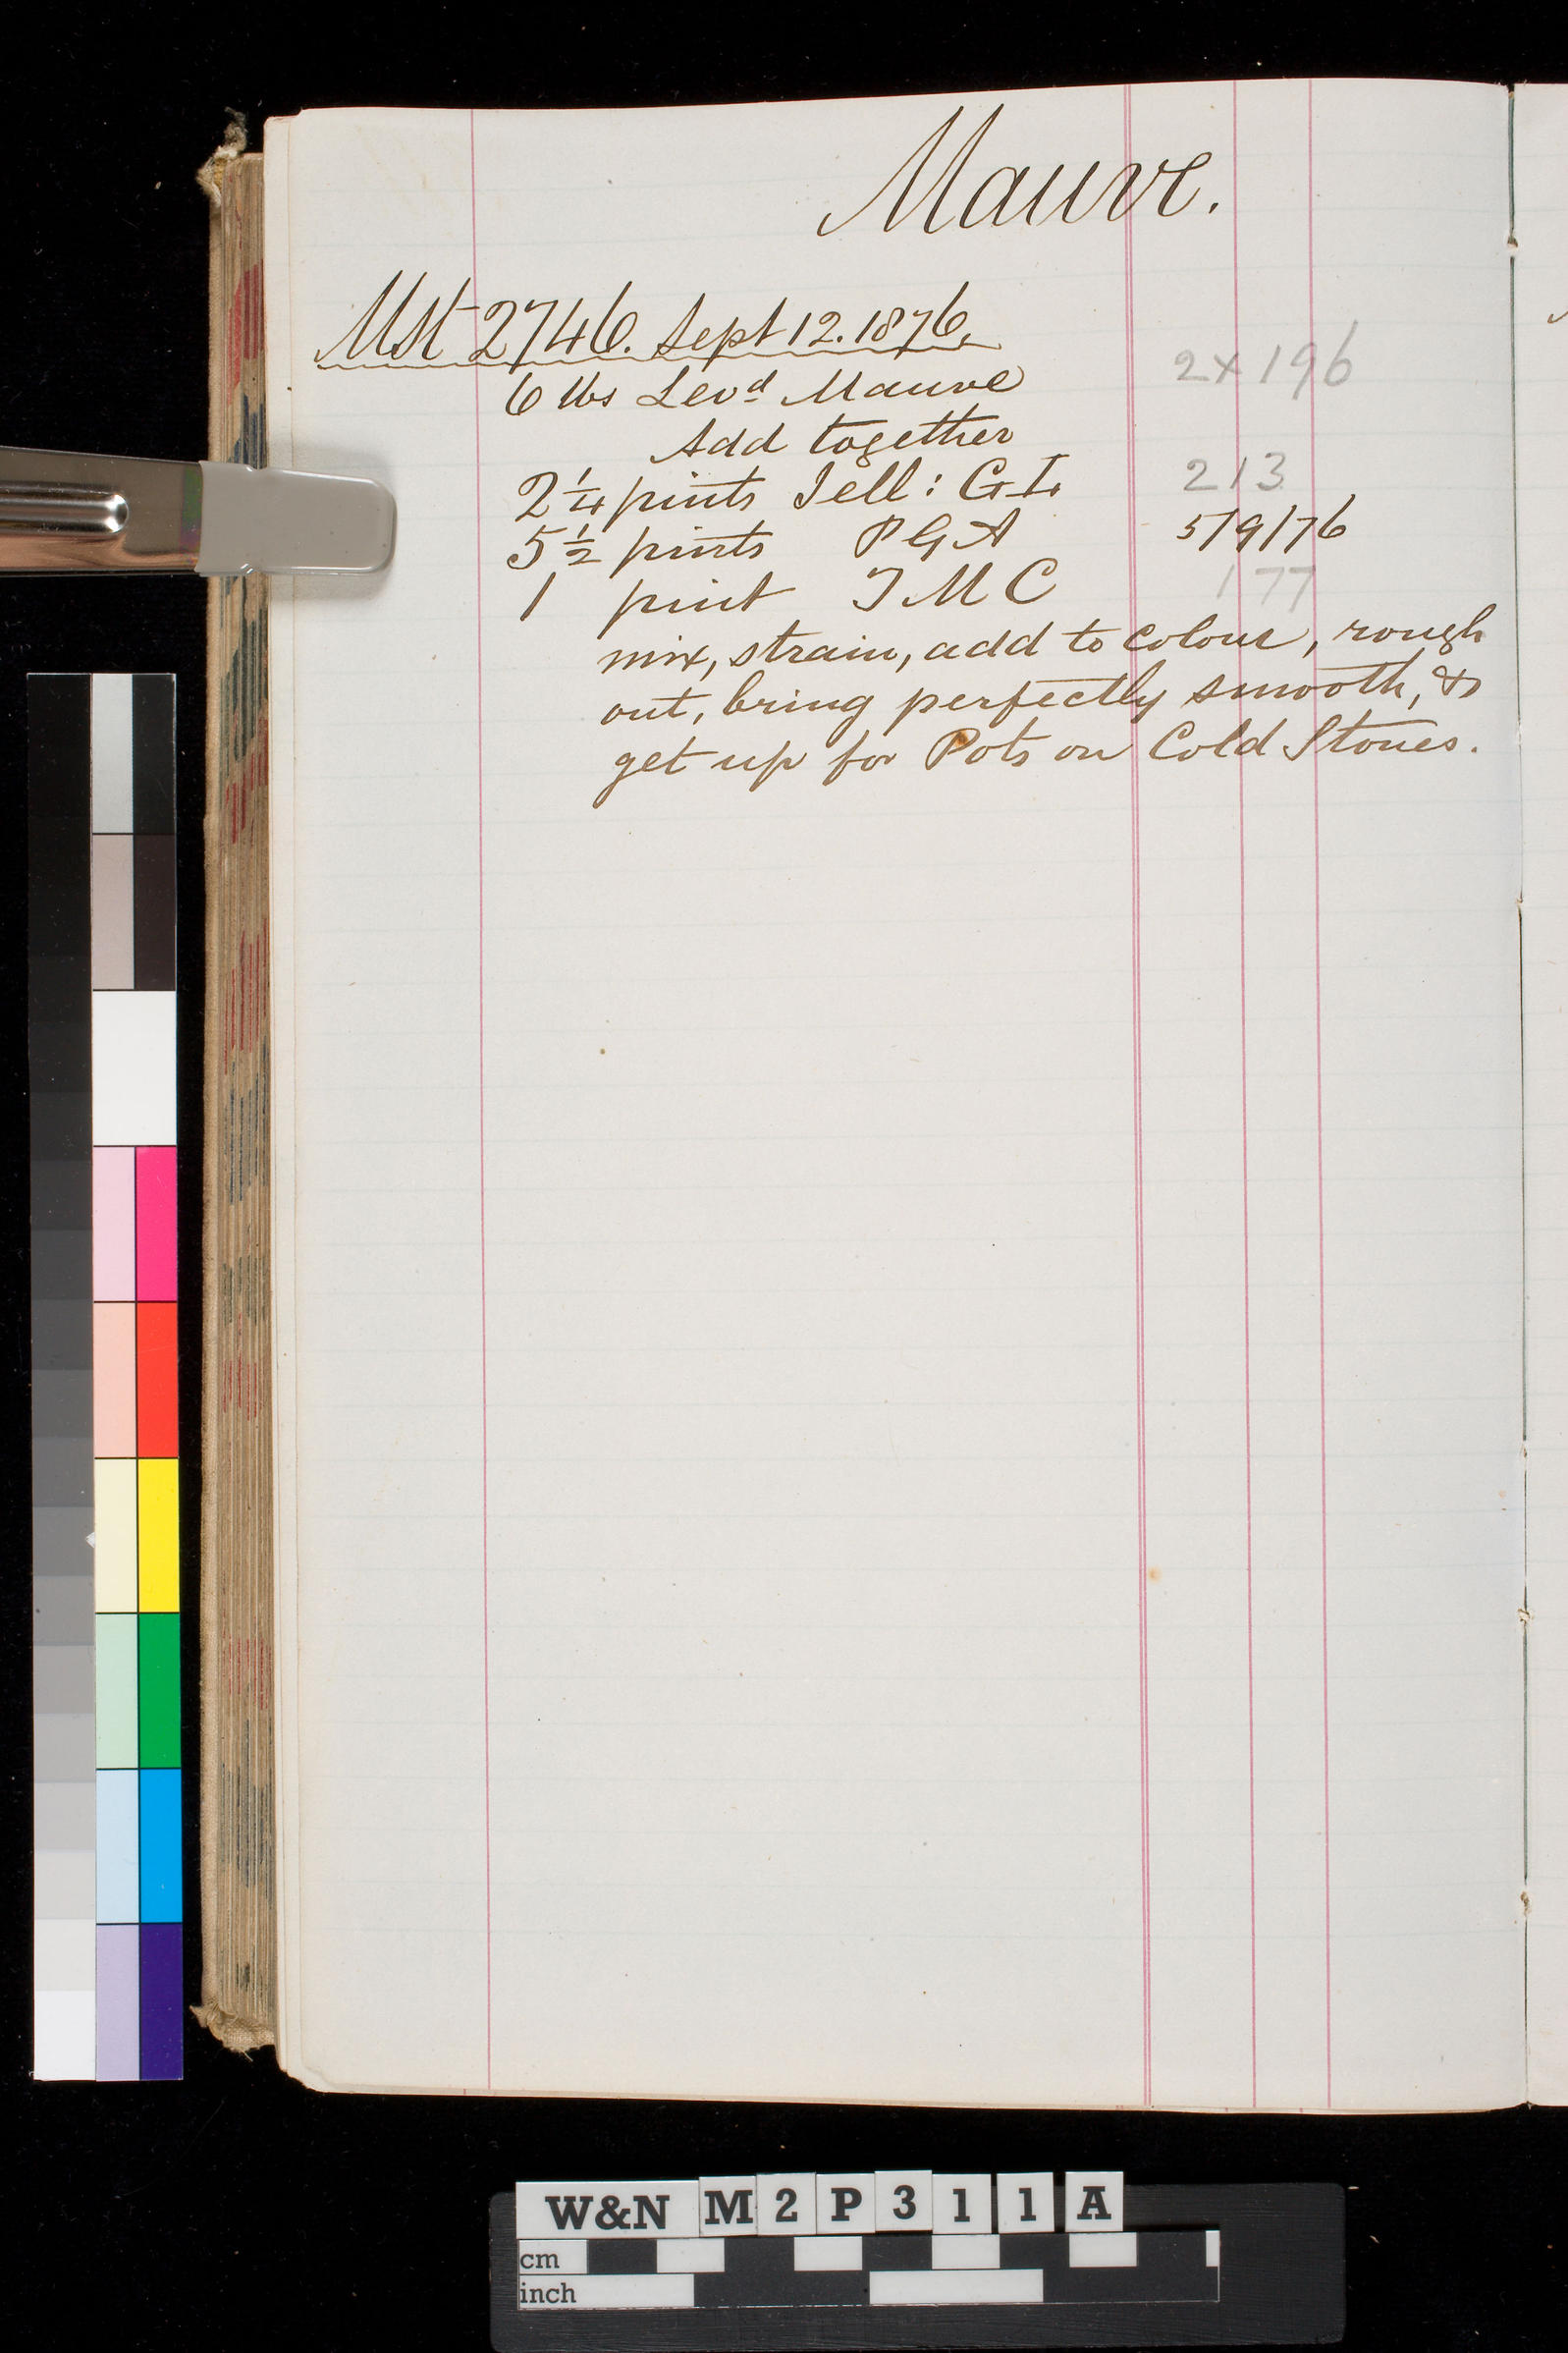 Mauve.
Mst 2746. Sept 12. 1876.
6 lbs Levd Mauve 2x196
Add together
2 1/4 pints Jell: G I. 213
5 1/2 pints P G A 5/9/76
1 pint T M C 177
mix, strain, add to colour, rough
out, bring perfectly smooth, &
get up for Pots on Cold Stones.
W&N M2P311A
cm
inch